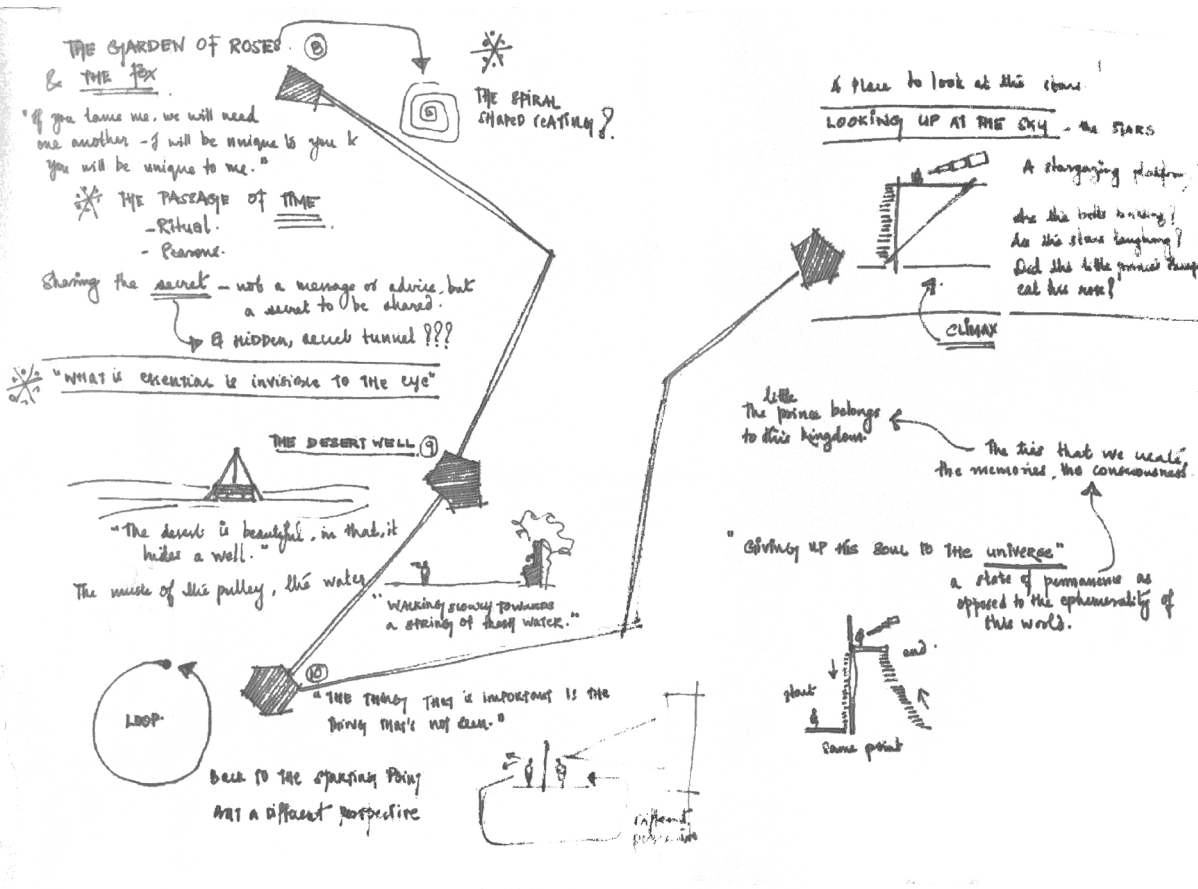 THE GARDEN OF ROSES. 8
& THE FOX
"If you tame me, we will need
one another - I will be unique to you &
you will be unique to me."
THE PASSAGE OF TIME
- Ritual.
- Seasons.
Sharing the secret - not a message or advice, but
a secret to be shared.
A HIDDEN, secret tunnel ???
"WHAT is essential is invisible TO THE eye"
THE SPIRAL
SHAPED SEATING?
THE DESERT WELL. 9
"The desert is beautiful, in that, it
hides a well."
The music of the pulley, the water
"WALKING SLOWLY TOWARDS
a STRING OF fresh WATER."
10
"THE THING THAT is IMPORTANT IS THE
THING THAT'S not seen."
LOOP.
BACK TO THE STARTING POINT
BUT a different perspective
different
A Place to look at the stars
LOOKING UP AT THE SKY - the STARS
A stargazing platform
Are the bells
Are the stars laughing?
Did the little prince's sheep
eat his rose?
CLIMAX
The little prince belongs
to this kingdom.
The ties that we create,
the memories, the consciousness.
"GIVING UP HIS SOUL TO THE UNIVERSE"
a state of permanence as
opposed to the ephemerality of
this world.
start
end.
same point